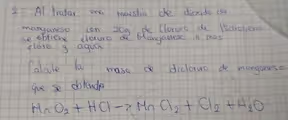 2- Al tratar una muestra de dioxido de
manganeso con 20g de Cloruro de Hidrogeno
se obtiene cloruro de Manganeso II mas
cloro y agua
Calcule la masa de dicloruro de manganeso
que se obtendra
MnO₂ + HCl -> MnCl₂ + Cl₂ + H₂O